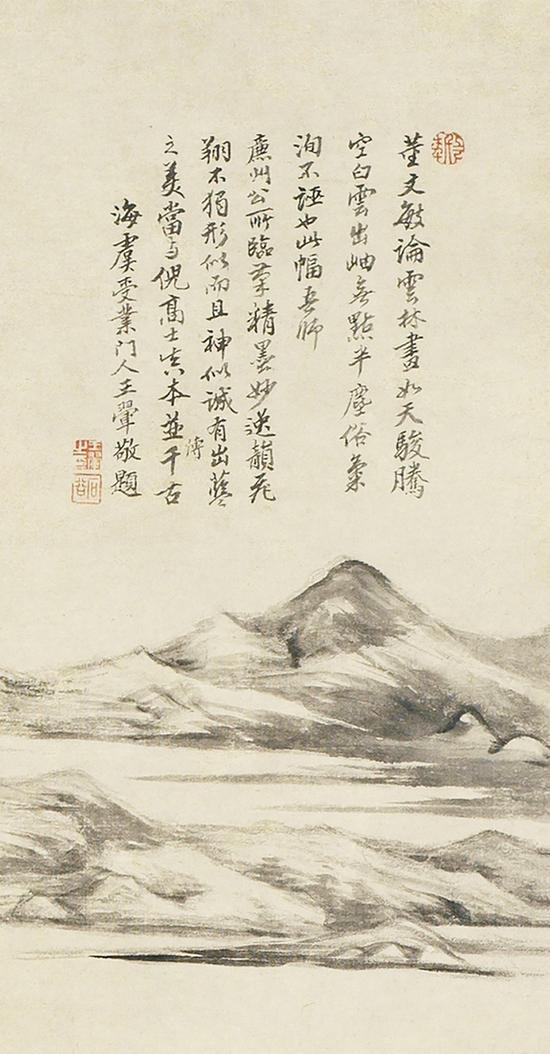 董文敏論雲林畫如天駿騰
空白雲出岫無點半塵俗氣
洵不誣也此幅吾師
廉州公所臨筆精墨妙逸韻
翔不獨形似而且神似誠有出藍
之美當與倪高士真本並千古
傳
海虞受業門人王翬敬題
王翬之印
石谷